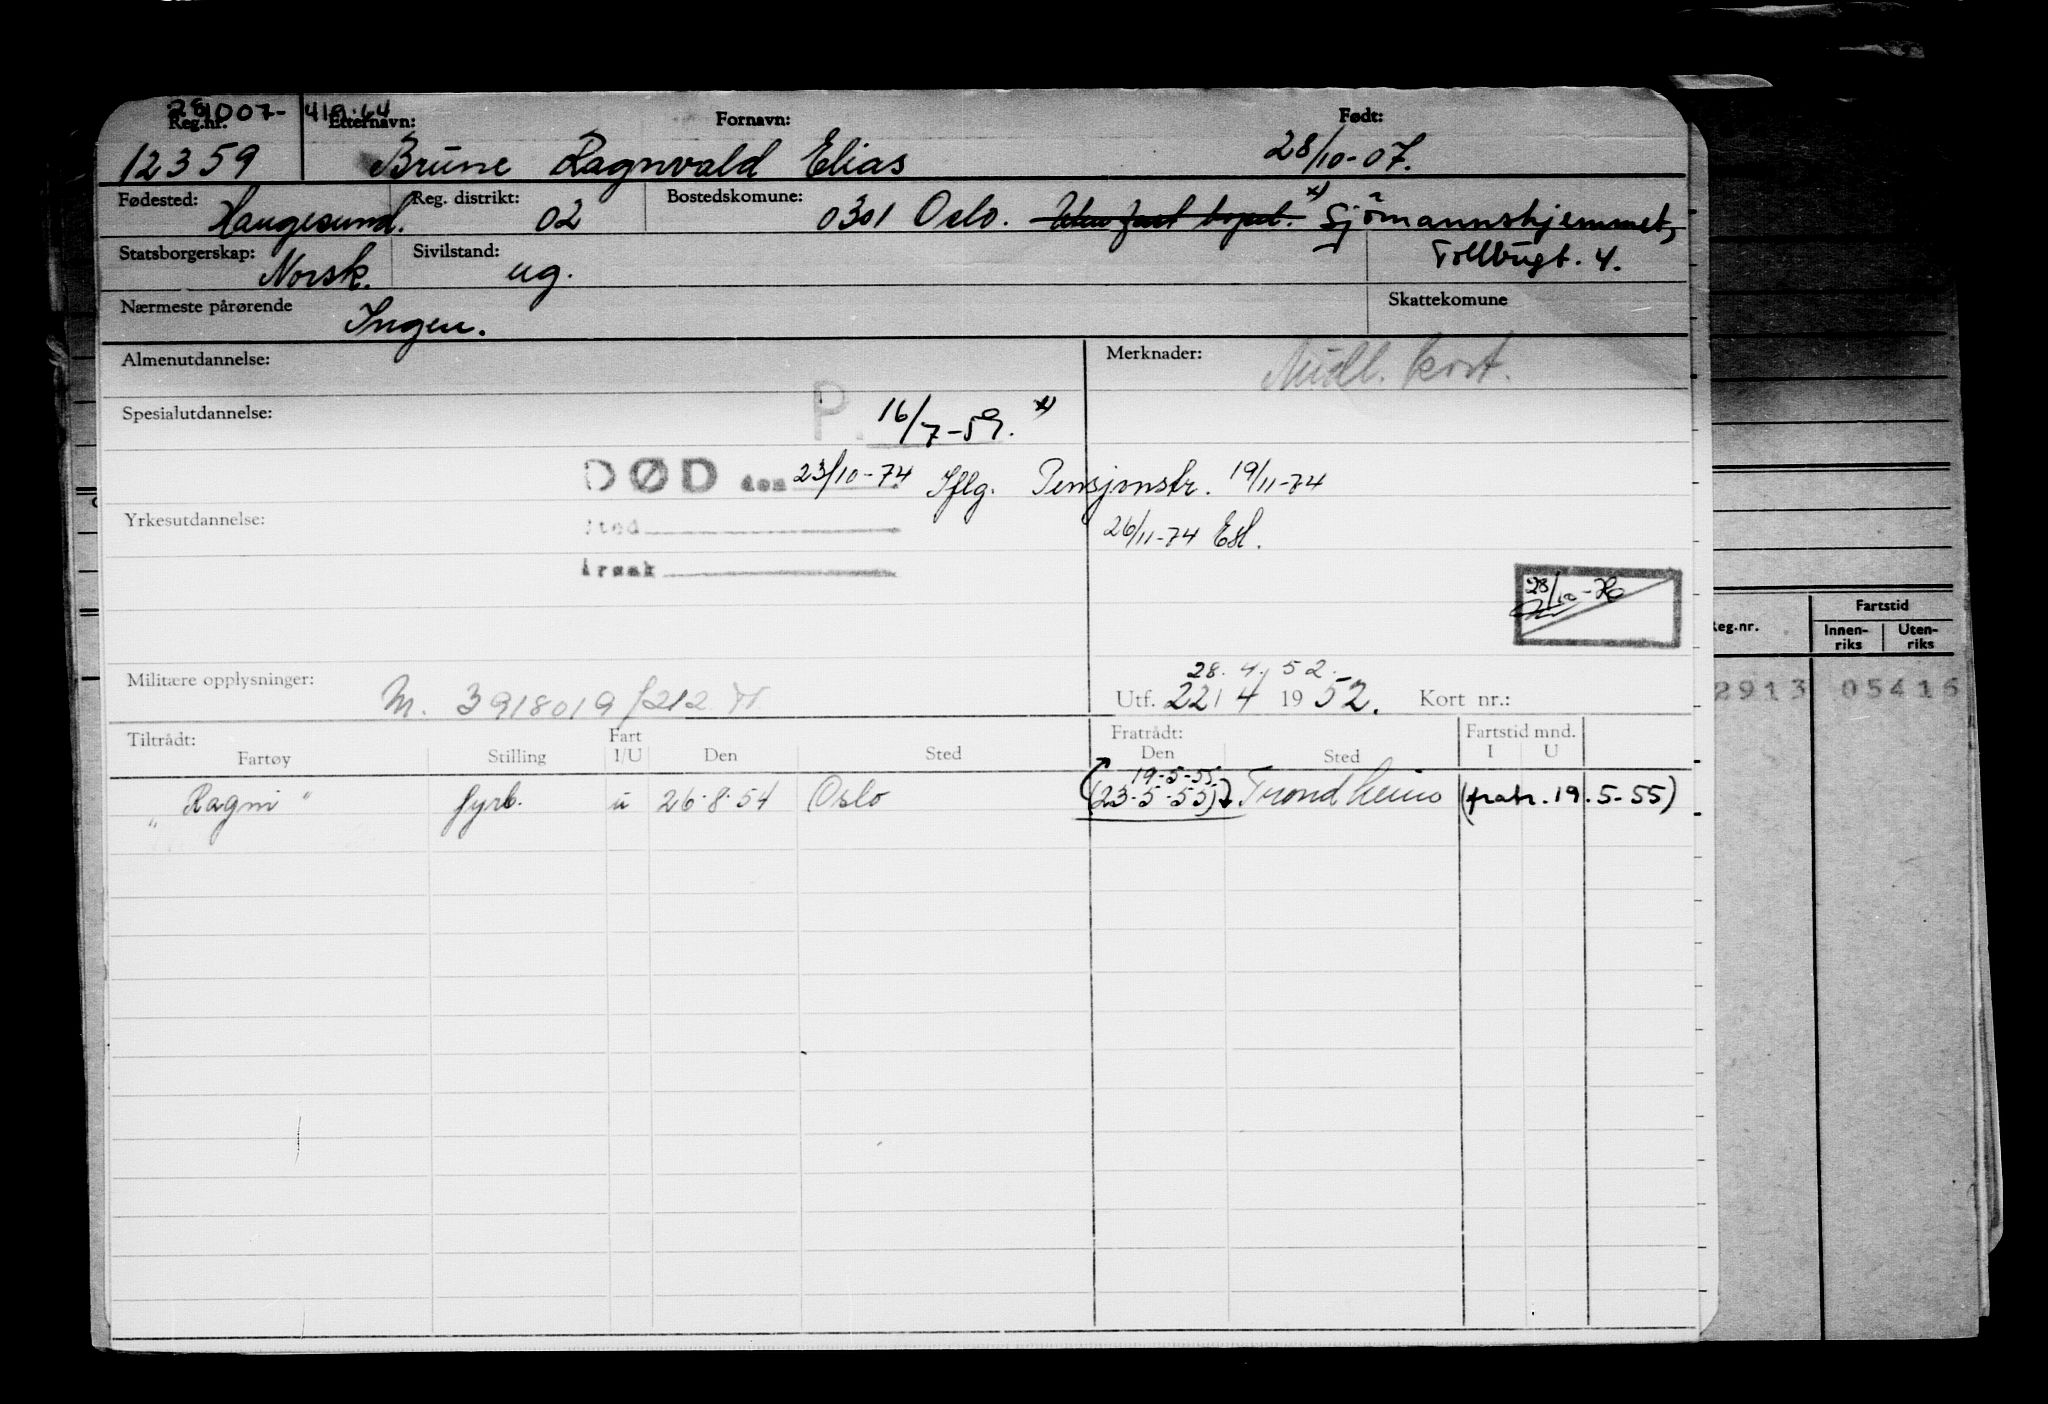 281007-
Reg.nr. Etternavn: Fornavn: Født:
12359 Brune Ragnvald Elias 28/10-07.
Fødested: Haugesund. Reg. distrikt: 02 Bostedskomune: 0301 Oslo. x) Sjömannshjemmet,
Tollbugt. 4.
Statsborgerskap: Norsk. Sivilstand: ug.
Nærmeste pårørende Ingen. Skattekomune
Almenutdannelse: Merknader: Midl. kort.
Spesialutdannelse: P. 16/7-59. x)
DØD den 23/10-74 Iflg. Pensjonstr. 19/11-74
Yrkesutdannelse: Sted 26/11-74
Årsak
28/10-
Reg.nr. Fartstid
Innen-riks Uten-riks
2913 05416
28. 4. 52.
Militære opplysninger: M. 3918019/212 Utf. 22/4 1952. Kort nr.:
Tiltrådt: Fart Fratrådt: Fartstid mnd.
Fartøy Stilling I/U Den Sted Den Sted I U
19-5-55
"Ragni" fyrb. u 26-8-54 Oslo (23-5-55) Trondheim (fratr. 19.5-55)